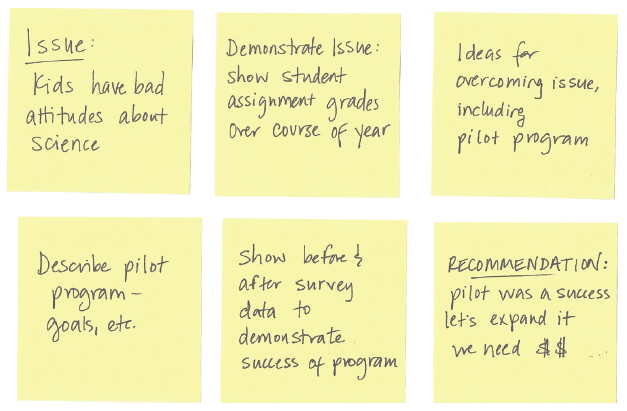 Issue:
Kids have bad
attitudes about
science
Demonstrate Issue:
show student
assignment grades
over course of year
Ideas for
overcoming issue,
including
pilot program
Describe pilot
program –
goals, etc.
Show before &
after survey
data to
demonstrate
success of program
RECOMMENDATION:
pilot was a success
let's expand it
we need $$ ...